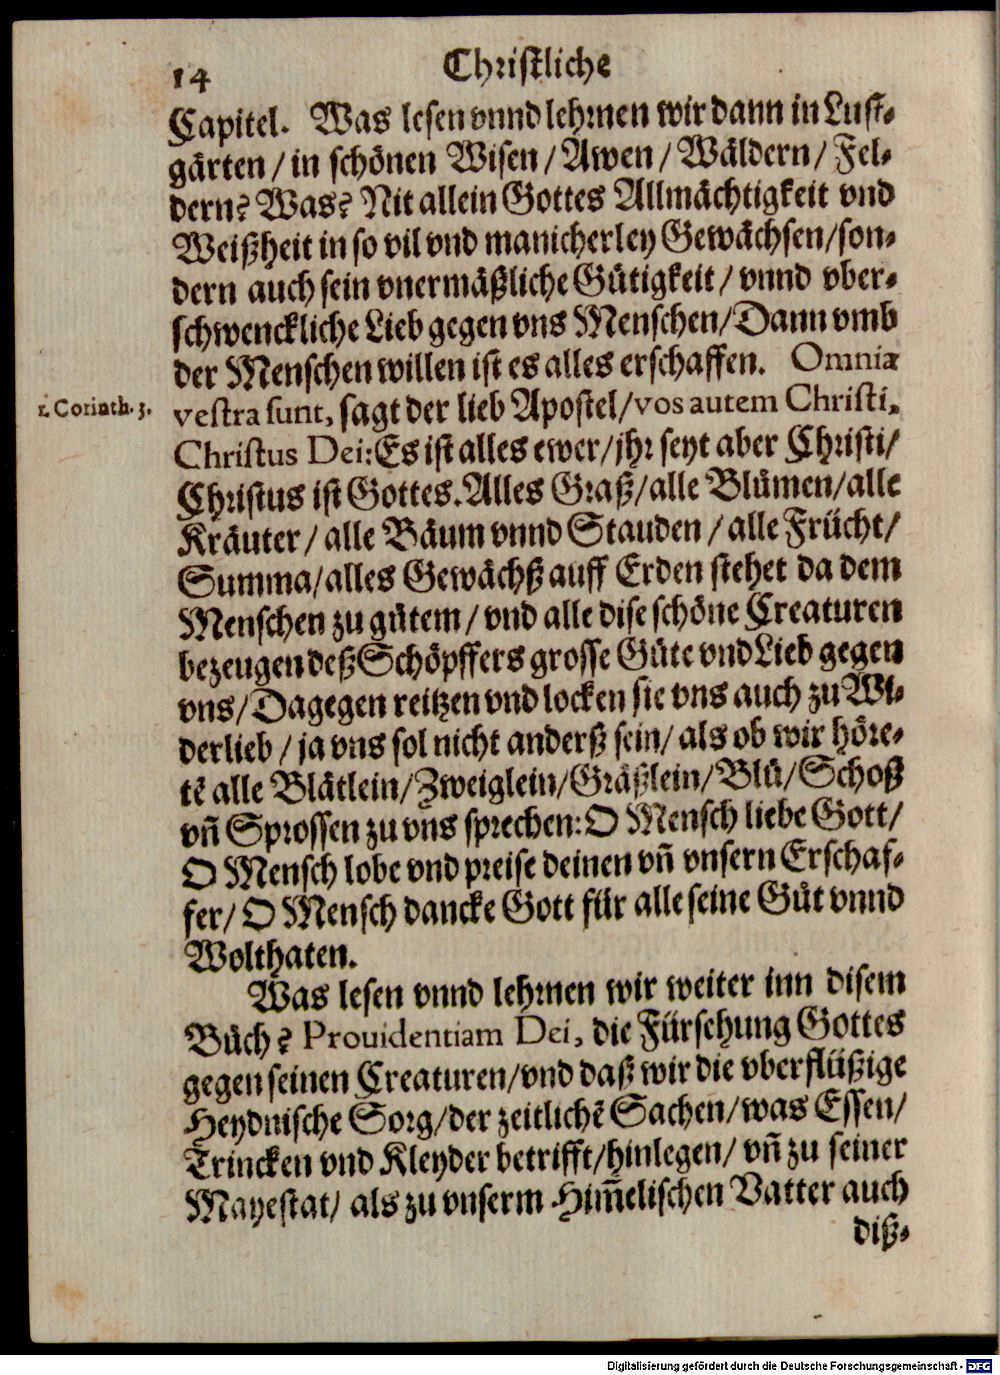 14 Christliche
Capitel. Was lesen vnnd lehrnen wir dann in Lust-
gärten / in schönen Wisen / Awen / Wäldern / Fel-
dern? Was? Nit allein Gottes Allmächtigkeit vnd
Weißheit in so vil vnd manicherley Gewächsen / son-
dern auch sein vnermäßliche Gütigkeit / vnnd vber-
schwenckliche Lieb gegen vns Menschen / Dann vmb
der Menschen willen ist es alles erschaffen. Omnia
1. Corinth. 3. vestra sunt, sagt der lieb Apostel / vos autem Christi,
Christus Dei: Es ist alles ewer / jhr seyt aber Christi /
Christus ist Gottes. Alles Graß / alle Blůmen / alle
Kräuter / alle Bäum vnnd Stauden / alle Frücht /
Summa / alles Gewächß auff Erden stehet da dem
Menschen zu gůtem / vnd alle dise schöne Creaturen
bezeugen deß Schöpffers grosse Güte vnd Lieb gegen
vns / Dagegen reitzen vnd locken sie vns auch zu Wi-
derlieb / ja vns sol nicht anderß sein / als ob wir höre-
tẽ alle Blätlein / Zweiglein / Gräßlein / Blů / Schoß
vñ Sprossen zu vns sprechen: O Mensch liebe Gott /
O Mensch lobe vnd preise deinen vñ vnsern Erschaf-
fer / O Mensch dancke Gott für alle seine Güt vnnd
Wolthaten.
Was lesen vnnd lehrnen wir weiter inn disem
Bůch? Prouidentiam Dei, die Fürsehung Gottes
gegen seinen Creaturen / vnd daß wir die vberflüßige
Heydnische Sorg / der zeitlichẽ Sachen / was Essen /
Trincken vnd Kleyder betrifft / hinlegen / vñ zu seiner
Mayestat / als zu vnserm Him̃elischen Vatter auch
diß-
Digitalisierung gefördert durch die Deutsche Forschungsgemeinschaft - DFG